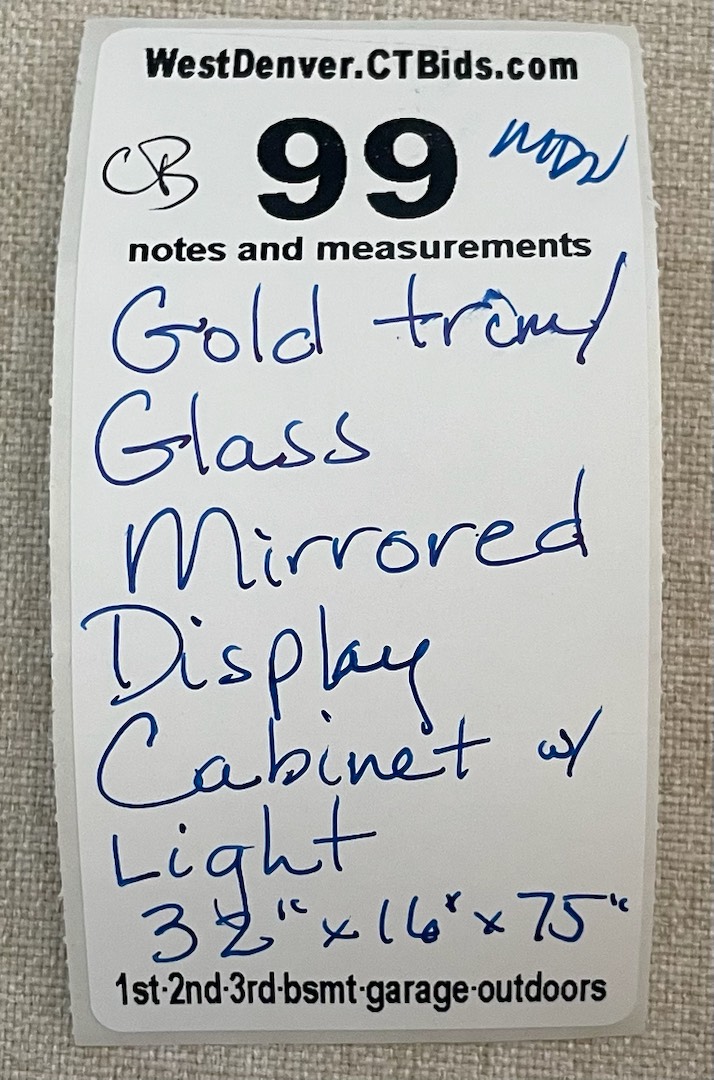 WestDenver.CTBids.com
CB 99
notes and measurements
Gold trim/
Glass
Mirrored
Display
Cabinet w/
Light
32" x 16" x 75"
1st·2nd·3rd·bsmt·garage·outdoors